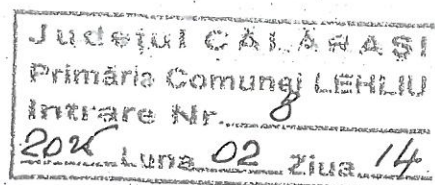 Județul CĂLĂRAȘI
Primăria Comunei LEHLIU
Intrare Nr. 8
Luna 02 Ziua 14